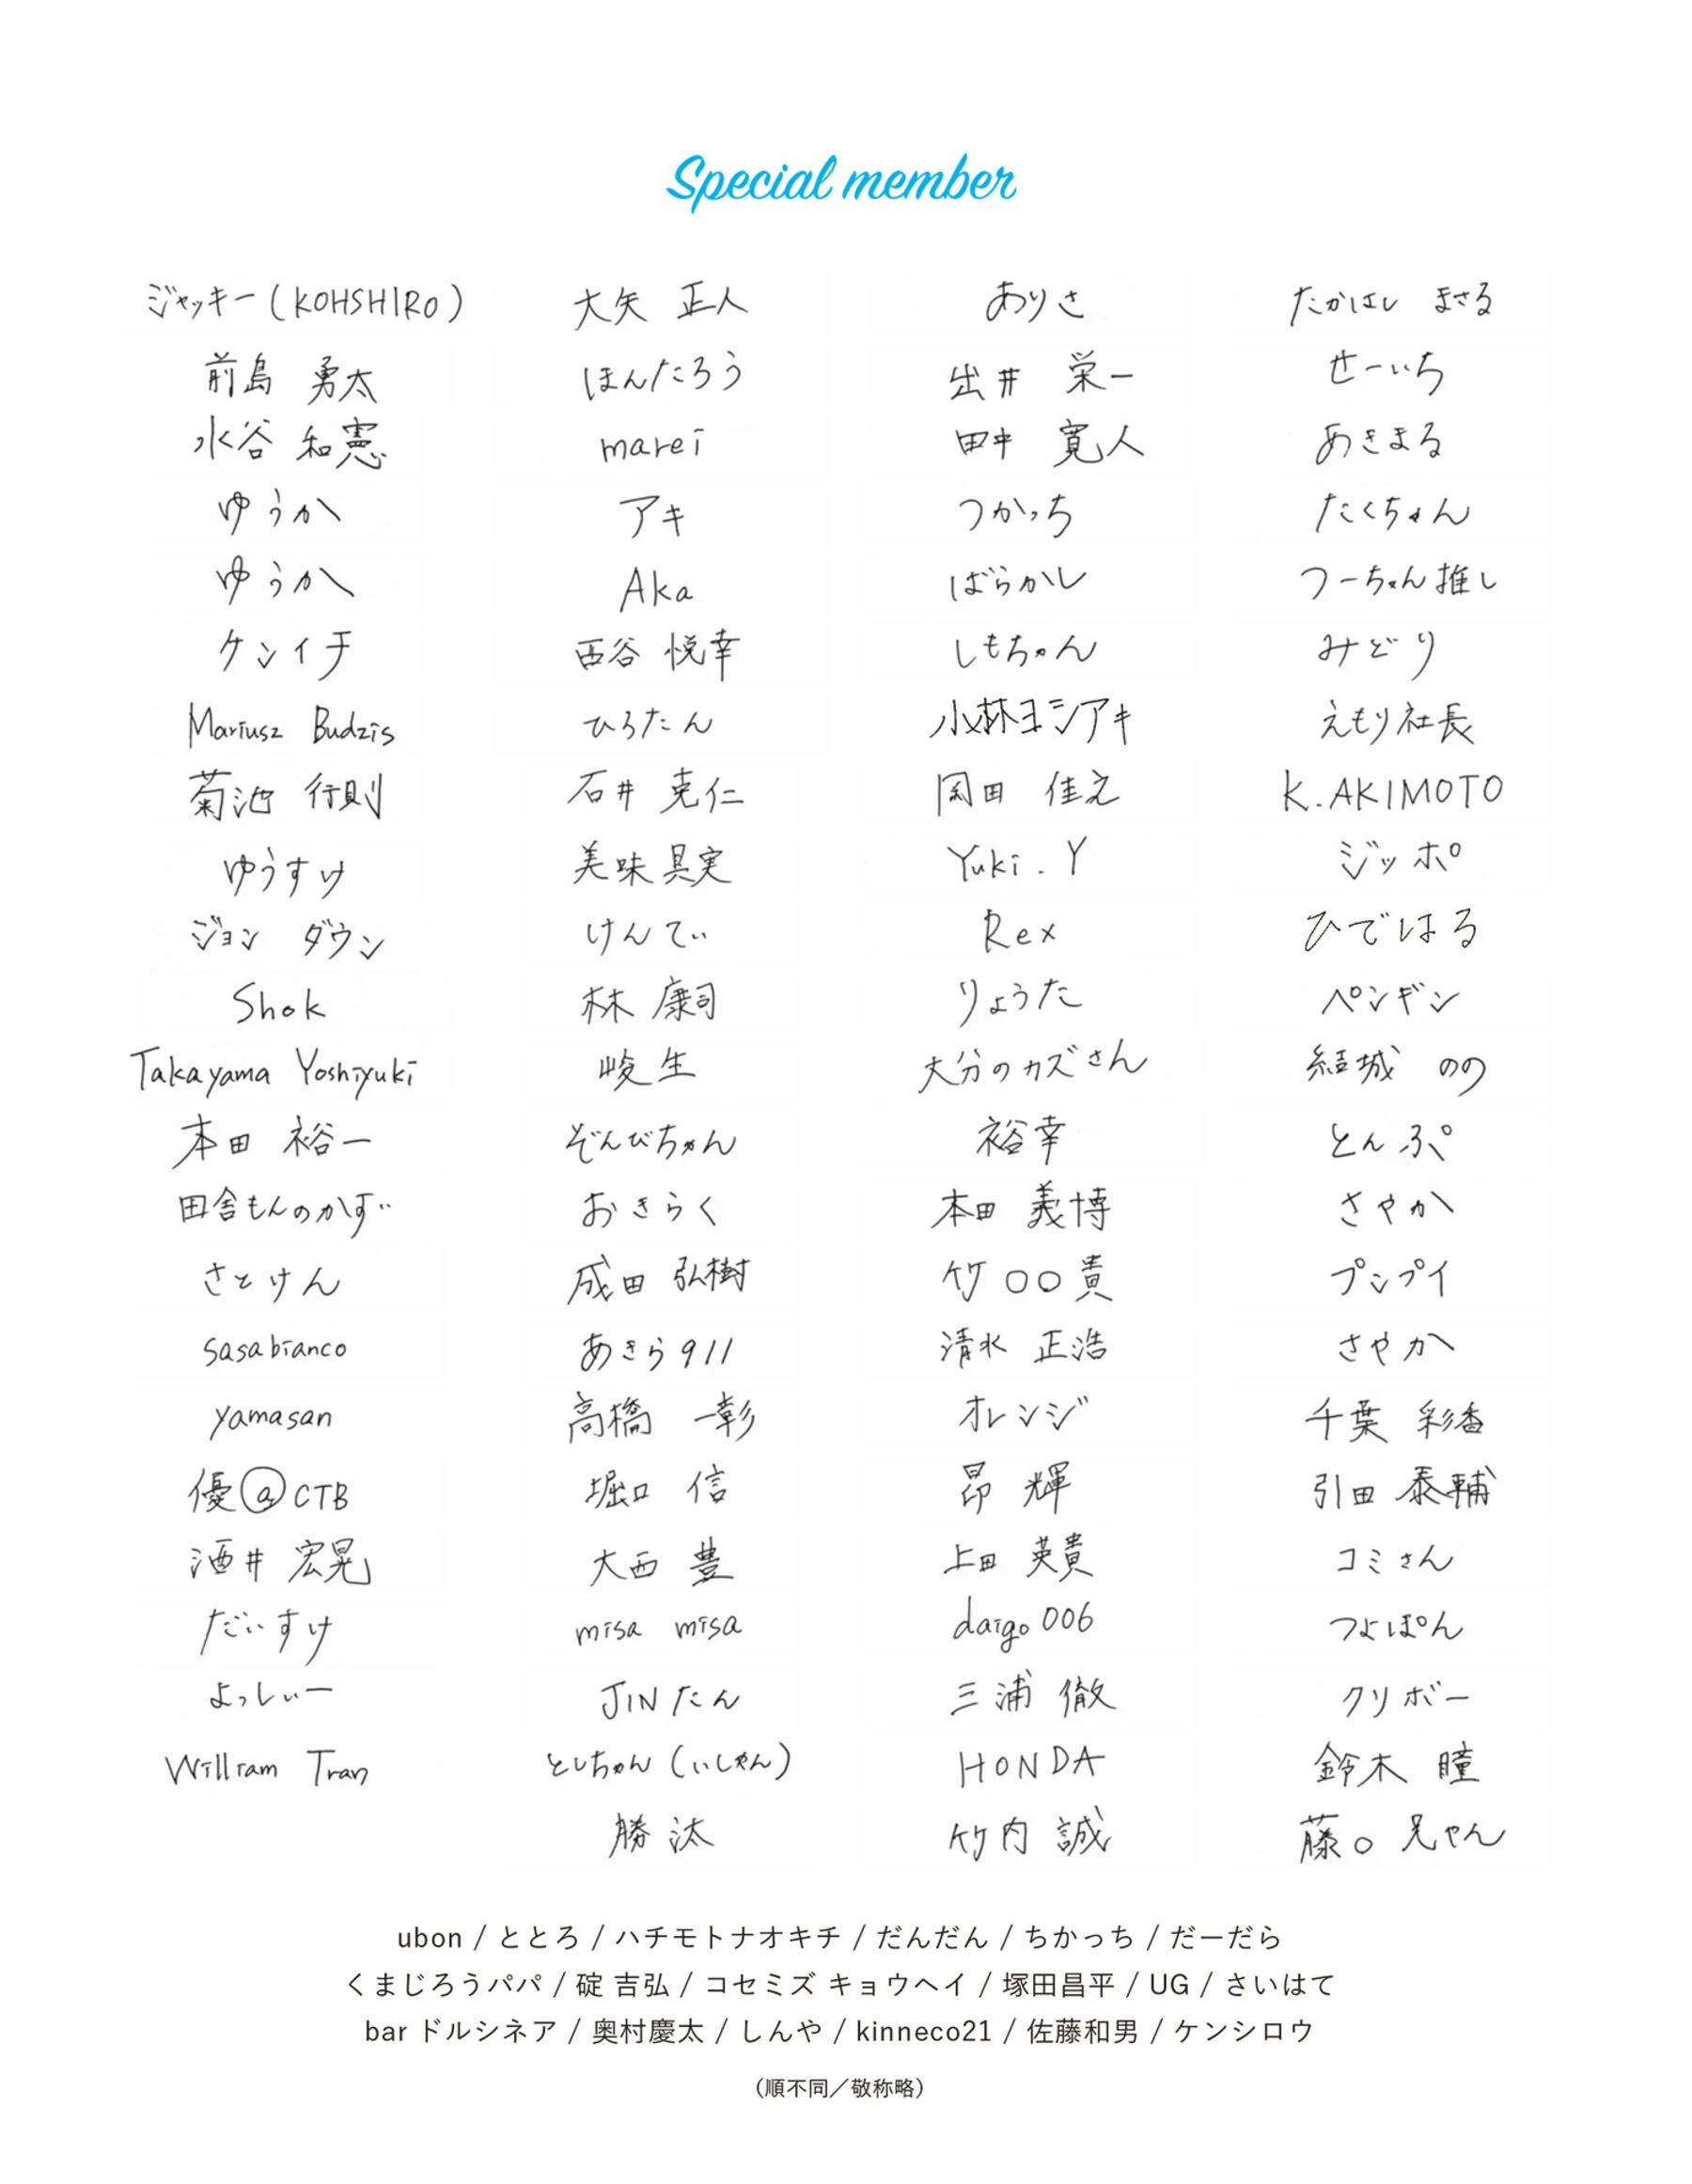 Special member
ジャッキー(KOHSHIRO) 大矢 正人 ありさ たかはし まさる
前島 勇太 ほんたろう 出井 栄一 せーいち
水谷 和憲 marei 田中 寛人 あきまる
ゆうか アキ つかっち たくちゃん
ゆうか Aka ばらかし つーちゃん推し
ケンイチ 西谷 悦幸 しもちゃん みどり
Mariusz Budzis ひろたん 小林ヨシアキ えもり社長
菊池 行則 石井 克仁 岡田 佳之 K.AKIMOTO
ゆうすけ 美味具実 Yuki.Y ジッポ
ジョン ダウン けんてぃ Rex ひではる
Shok 林 康司 りょうた ペンギン
Takayama Yoshiyuki 峻生 大分のカズさん 結城 のの
本田 裕一 ぞんびちゃん 裕幸 とんぷ
田舎もんのかず゛ おきらく 本田 義博 さやか
さとけん 成田 弘樹 竹○○貴 プンプイ
sasabianco あきら911 清水 正浩 さやか
yamasan 高橋 一彰 オレンジ 千葉 彩香
優@CTB 堀口 信 昂輝 引田 泰輔
酒井 宏晃 大西 豊 上田 英貴 コミさん
だいすけ misa misa daigo006 つよぽん
よっしぃー JINたん 三浦 徹 クリボー
William Tran としちゃん(いしやん) HONDA 鈴木 瞳
勝汰 竹内 誠 藤○兄やん
ubon / ととろ / ハチモトナオキチ / だんだん / ちかっち / だーだら
くまじろうパパ / 碇 吉弘 / コセミズ キョウヘイ / 塚田昌平 / UG / さいはて
bar ドルシネア / 奥村慶太 / しんや / kinneco21 / 佐藤和男 / ケンシロウ
(順不同／敬称略)